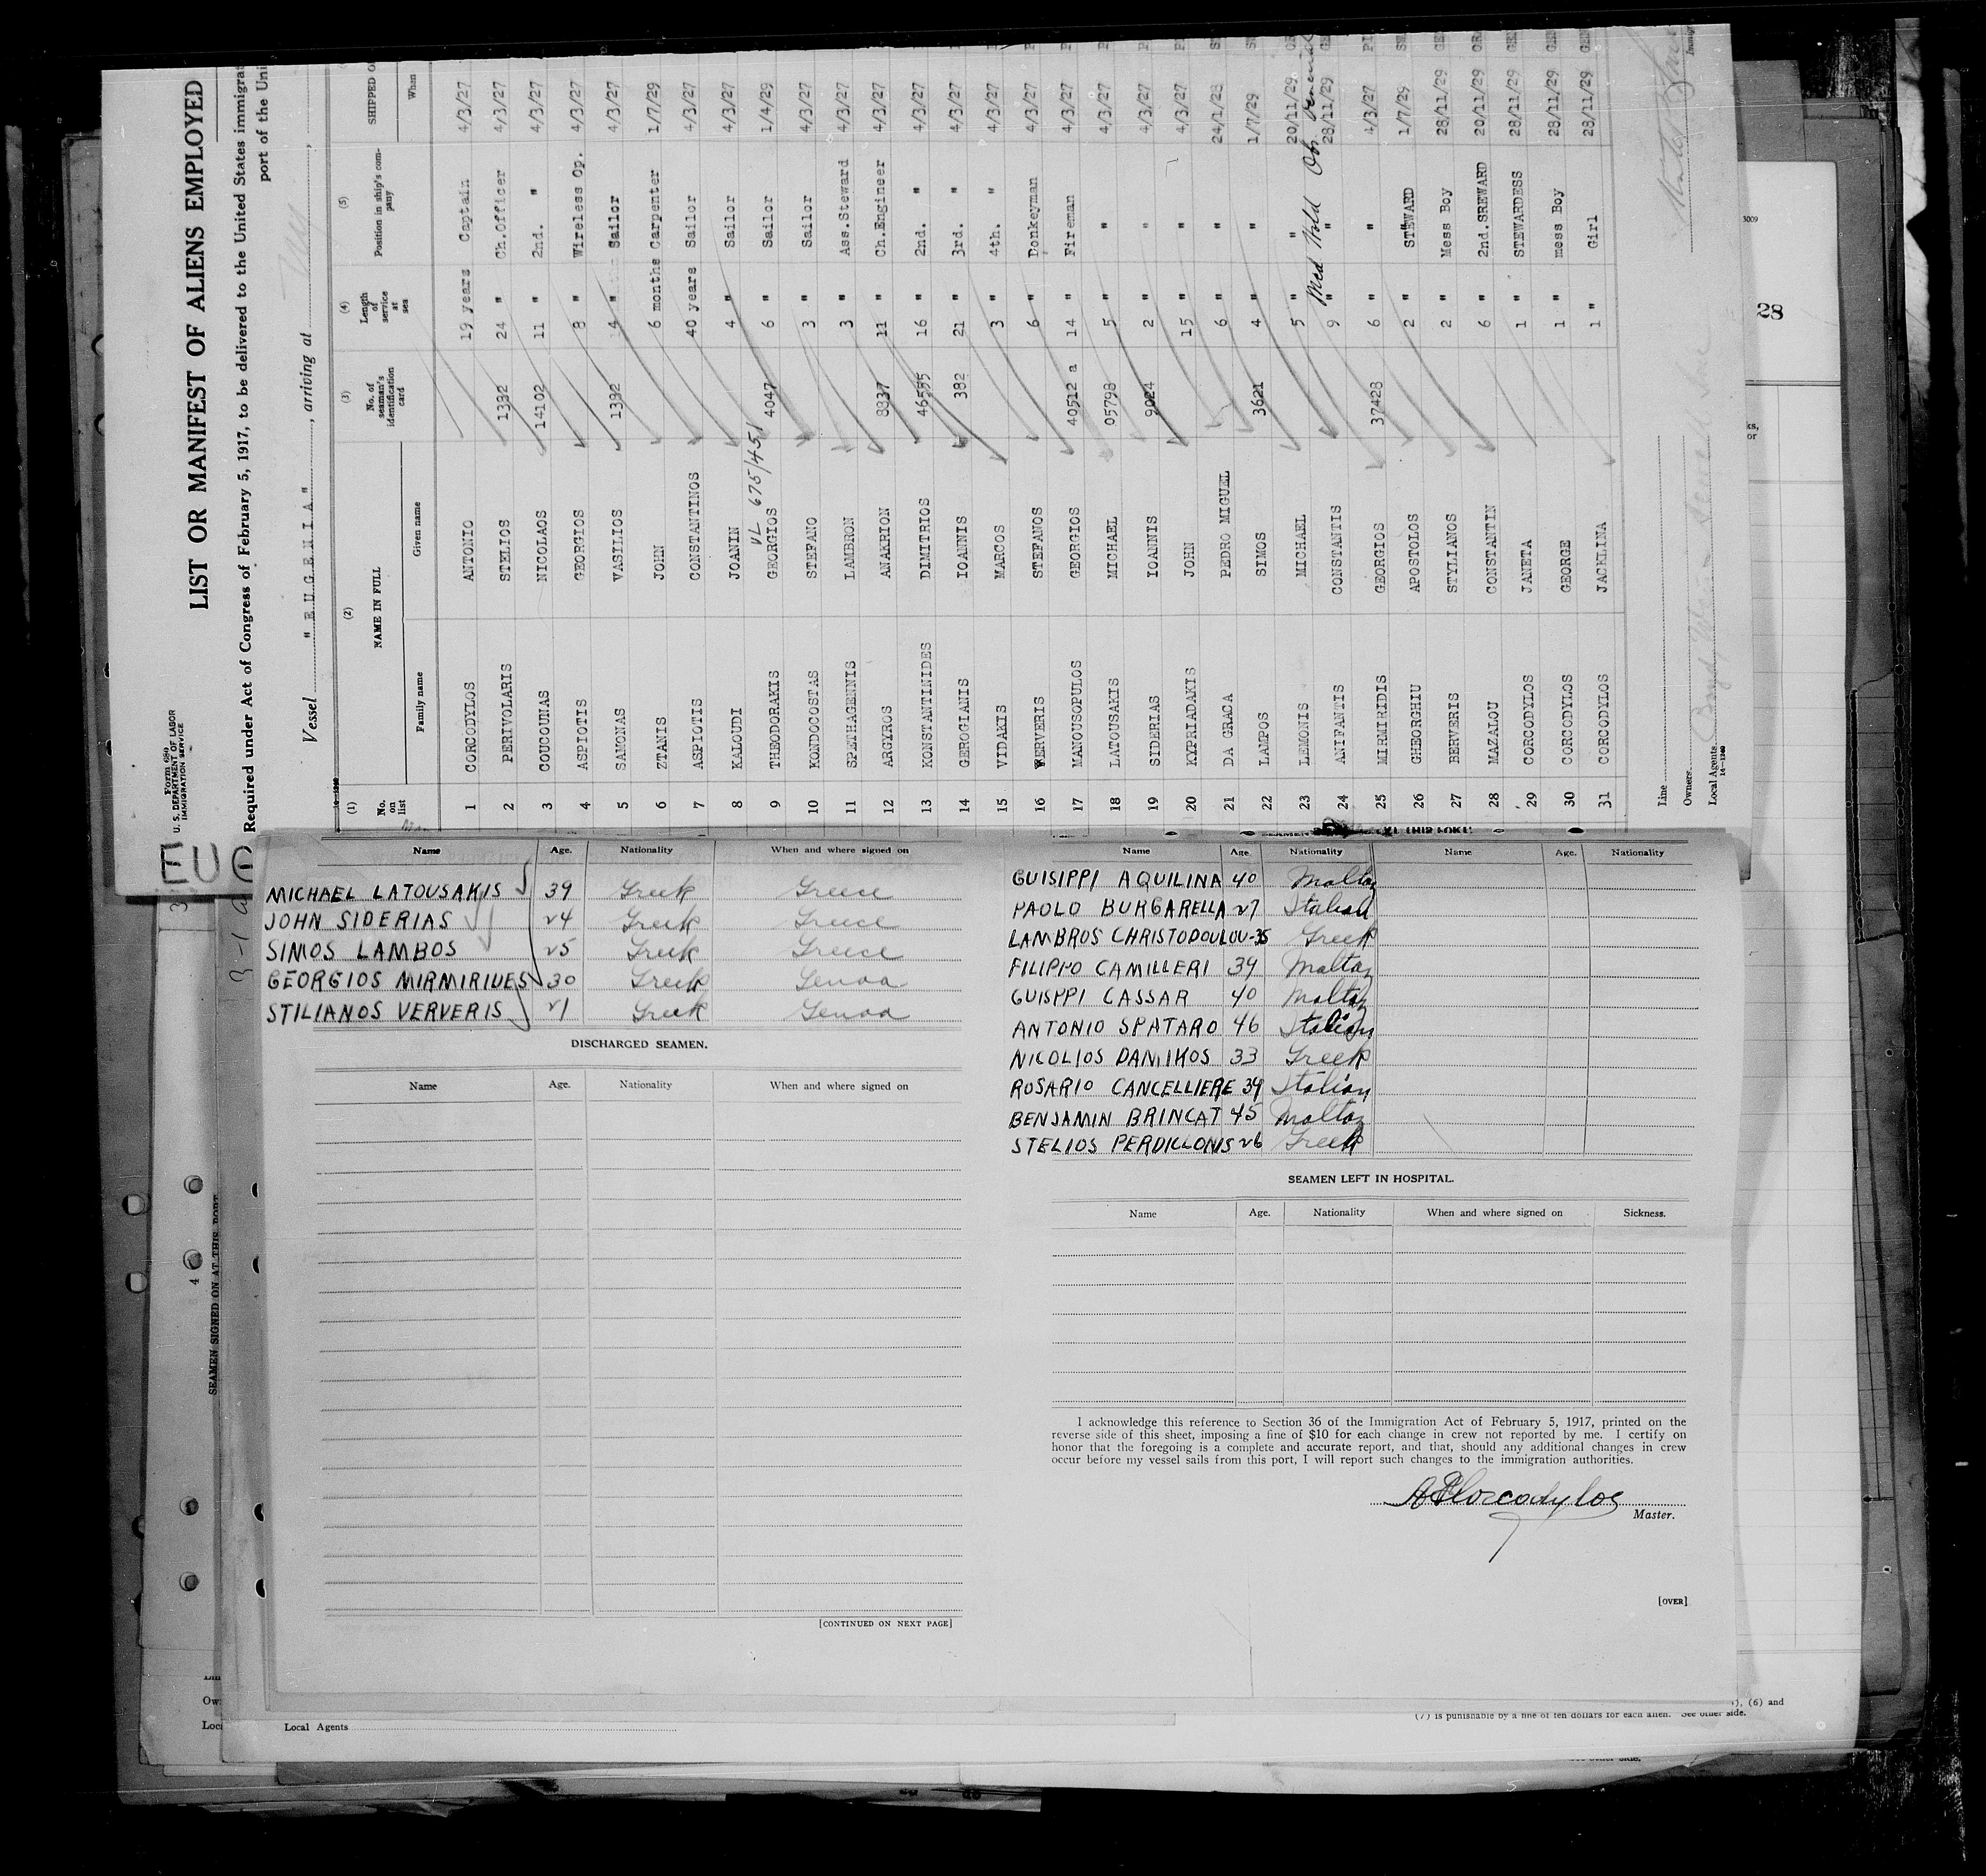 Form 689
U. S. DEPARTMENT OF LABOR
IMMIGRATION SERVICE
LIST OR MANIFEST OF ALIENS EMPLOYED
Required under Act of Congress of February 5, 1917, to be delivered to the United States immigrat
port of the Uni
Vessel " E.U.G.E.N.I.A." , arriving at
(1) (2) (3) (4) (5)
No. on list NAME IN FULL No. of seaman's identification card Length of service at sea Position in ship's company SHIPPED O
Family name Given name When
1 CORCODYLOS ANTONIO 19 years Captain 4/3/27
2 PERIVOLARIS STELIOS 1332 24 " Ch.Officer 4/3/27
3 COUCOUNAS NICOLAOS 14102 11 " 2nd. " 4/3/27
4 ASPIOTIS GEORGIOS 8 " Wireless Op. 4/3/27
5 SAMONAS VASILIOS 1332 4 " Sailor 4/3/27
6 ZTANIS JOHN 6 months Carpenter 1/7/29
7 ASPIOTIS CONSTANTINOS 40 years Sailor 4/3/27
8 KALOUDI JOANIN 4 " Sailor 4/3/27
VL 675/451
9 THEODORAKIS GEORGIOS 4047 6 " Sailor 1/4/29
10 KONDOCOSTAS STEFANO 3 " Sailor 4/3/27
11 SPETHAGENNIS LAMBRON 3 " Ass.Steward 4/3/27
12 ARGYROS ANAKRION 8837 11 " Ch.Engineer 4/3/27
13 KONSTANTINIDES DIMITRIOS 46555 16 " 2nd. " 4/3/27
14 GEROGIANIS IOANNIS 382 21 " 3rd. " 4/3/27
15 VIDAKIS MARCOS 3 " 4th. " 4/3/27
16 VERVERIS STEFANOS 6 " Donkeyman 4/3/27
17 MANOUSOPULOS GEORGIOS 40512 a 14 " Fireman 4/3/27
18 LATOUSAKIS MICHAEL 05798 5 " " 4/3/27
19 SIDERIAS IOANNIS 9024 2 " " 4/3/27
20 KYPRIADAKIS JOHN 15 " " 4/3/27
21 DA GRACA PEDRO MIGUEL 6 " " 24/1/28
22 LAMPOS SIMOS 3621 4 " " 1/7/29
23 LEMONIS MICHAEL 5 " " 20/11/29
Med Hold Ob
24 ANIFANTIS CONSTANTIS 9 " " 28/11/29
25 MIRMIRIDIS GEORGIOS 37428 6 " " 4/3/27
26 GHEORGHIU APOSTOLOS 2 " STEWARD 1/7/29
27 BERVERIS STYLIANOS 2 " Mess Boy 28/11/29
28 MAZALOU CONSTANTIN 6 " 2nd.SREWARD 20/11/29
29 CORCODYLOS JANETA 1 " STEWARDESS 28/11/29
30 CORCODYLOS GEORGE 1 " mess Boy 28/11/29
31 CORCODYLOS JACKLINA 1 " Girl 28/11/29
Line
Owners
Local Agents
Name Age. Nationality When and where signed on
MICHAEL LATOUSAKIS 39 Greek Greece
JOHN SIDERIAS 24 Greek Greece
SIMOS LAMBOS 25 Greek Greece
GEORGIOS MIRMIRIDES 30 Greek Genoa
STILIANOS VERVERIS 21 Greek Genoa
DISCHARGED SEAMEN.
Name Age. Nationality When and where signed on
[CONTINUED ON NEXT PAGE]
Name Age. Nationality Name Age. Nationality
GUISIPPI AQUILINA 40 Maltaz
PAOLO BURGARELLA 27 Italian
LAMBROS CHRISTODOULOU-35 Greek
FILIPPO CAMILLERI 39 Maltaz
GUISPPI CASSAR 40 Maltaz
ANTONIO SPATARO 46 Italian
NICOLIOS DANIKOS 33 Greek
ROSARIO CANCELLIERE 39 Italian
BENJAMIN BRINCAT 45 Maltaz
STELIOS PERDICLONIS 26 Greek
SEAMEN LEFT IN HOSPITAL.
Name Age. Nationality When and where signed on Sickness.
I acknowledge this reference to Section 36 of the Immigration Act of February 5, 1917, printed on the
reverse side of this sheet, imposing a fine of $10 for each change in crew not reported by me. I certify on
honor that the foregoing is a complete and accurate report, and that, should any additional changes in crew
occur before my vessel sails from this port, I will report such changes to the immigration authorities.
Corcodylos
Master.
[OVER]
SEAMEN SIGNED ON AT THIS PORT
Local Agents
(6) and
(7) is punishable by a fine of ten dollars for each alien. See other side.
28
3009